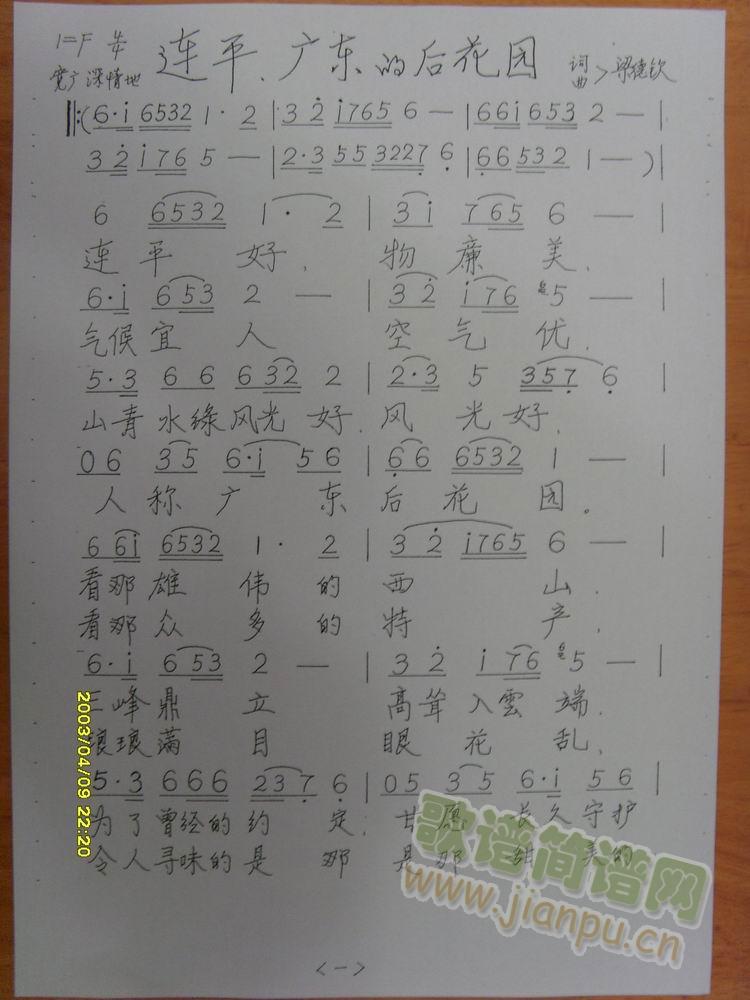 1=F 4/4 连平、广东的后花园 词曲>梁德钦
宽广深情地
‖:(6·i 6532 1·2 | 3 2 i765 6 — | 66i 653 2 — |
3 2 i 76 5 — | 2·3 55 3227 6 | 66532 1 — )
6 6532 1· 2 | 3i 765 6 — |
连平好，物廉美，
6·i 653 2 — | 3 2 i 76 5 — |
气候宜人 空气优，
5·3 6 6 6 32 2 | 2·3 5 357 6 |
山青水绿风光好，风光好，
06 35 6·i 56 | 66 6532 1 — |
人称广东后花园。
6 6i 6532 1· 2 | 3 2 i765 6 — |
看那雄伟的西山，
看那众多的特产，
6·i 653 2 — | 3 2 i 76 5 — |
三峰鼎立 高耸入雲端，
琅琅满目 眼花乱，
5·3 666 237 6 | 05 35 6·i 56 |
为了曾经的约定，甘愿长久守护
令人寻味的是那 是那甜美的
<一>
2003/04/09 22:20
歌谱简谱网
www.jianpu.cn